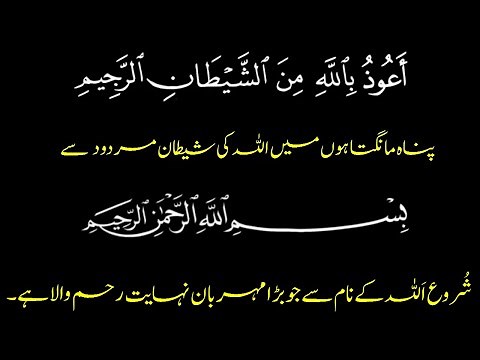 أَعُوذُ بِاللَّهِ مِنَ الشَّيْطَانِ الرَّجِيمِ
پناہ مانگتا ہوں میں اللہ کی شیطان مردود سے
بِسْمِ اللَّهِ الرَّحْمَٰنِ الرَّحِيمِ
شُروع اَللہ کے نام سے جو بڑا مہربان نہایت رحم والا ہے۔